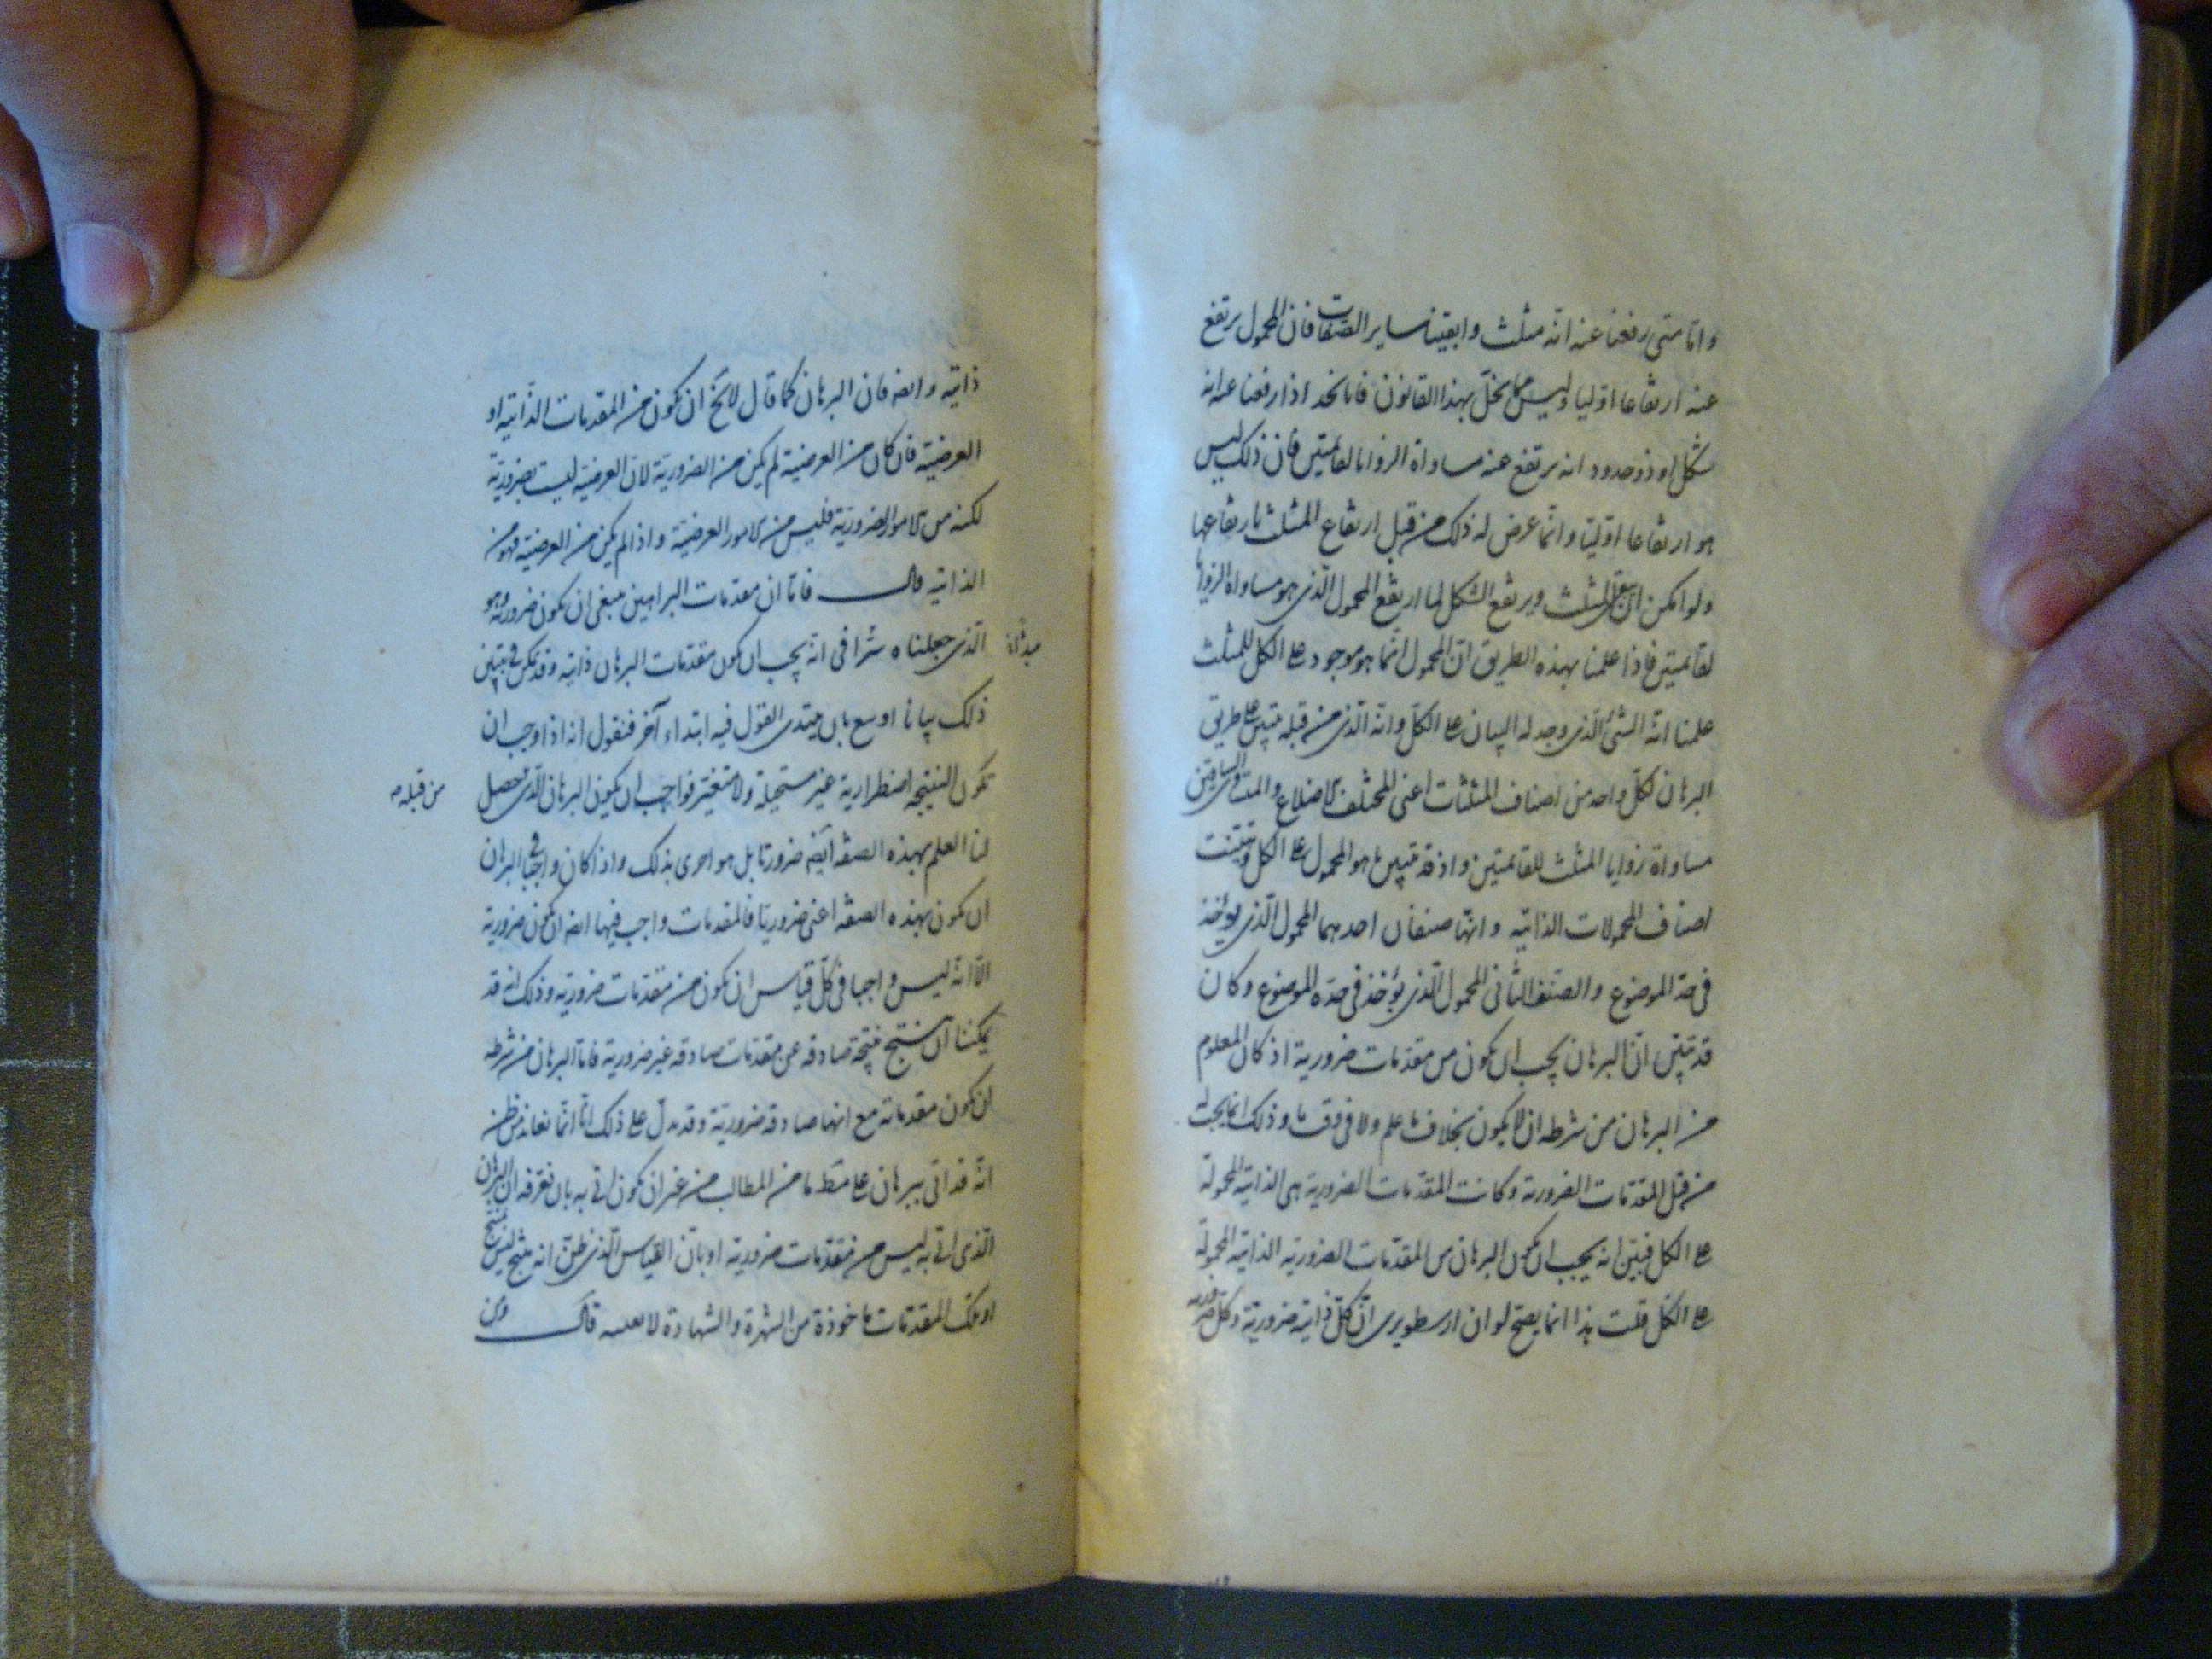 واما متى رفعنا عنه انه مثلث وابقينا ساير الصفات فان المحمول يرتفع
عنه ارتفاعا اوليا وليس مما يخل بهذا القانون فانا نجد اذا رفعنا عنه انه
شكل او ذو حدود انه يرتفع عنه مساواة الزوايا لقائمتين فان ذلك ليس
هو ارتفاعا اوليا وانما عرض له ذلك من قبل ارتفاع المثلث بارتفاعها
ولو امكن ان يبقى المثلث ويرتفع الشكل لما ارتفع المحمول الذى هو مساواة الزوايا
لقائمتين فاذا علمنا بهذه الطريق ان المحمول انما هو موجود على الكل للمثلث
علمنا انه الشئ الذى وجد له البيان على الكل وانه الذى من قبله تبين على طريق
البرهان لكل واحد من اصناف المثلثات اعنى المختلف الاضلاع والمتساوى الساقين
مساواة زوايا المثلث للقائمتين واذ قد تبين ما هو المحمول على الكل وتبينت
اصناف المحمولات الذاتية وانها صنفان احدهما المحمول الذى يؤخذ
فى حد الموضوع والصنف الثانى المحمول الذى يؤخذ فى حده الموضوع وكان
قد تبين ان البرهان يجب ان يكون من مقدمات ضرورية اذ كان المعلوم
من البرهان من شرطه ان لا يكون بخلاف ما علم ولا فى وقت ما وذلك انما يجب له
من قبل المقدمات الضرورية وكانت المقدمات الضرورية هى الذاتية المحمولة
على الكل فبين انه يجب ان يكون البرهان من المقدمات الضرورية الذاتية المحمولة
على الكل قلت هذا انما يصح لو ان ارسطو يرى ان كل ذاتية ضرورية وكل ضرورية
ذاتية وايضه فان البرهان كما قال لا يخ ان يكون من المقدمات الذاتية او
العرضية فان كان من العرضية لم يكن من الضرورية لان العرضية ليست بضرورية
لكنه من الامور الضرورية فليس من الامور العرضية واذا لم يكن من العرضية فهو من
الذاتية قال فاما ان مقدمات البراهين ينبغى ان تكون ضرورية وهو
الذى جعلناه مبدأنا فى انه يجب ان يكون مقدمات البرهان ذاتية وقد يمكن ان نبين
ذلك بيانا اوسع بان نبتدى القول فيه ابتداء آخر فنقول انه اذا وجب ان
تكون النتيجة اضطرارية غير مستحيلة ولا متغيرة فواجب ان يكون البرهان الذى تحصل
من قبله
لنا العلم بهذه الصفة ايضه ضروريا بل هو احرى بذلك واذا كان واجبا فى البرهان
ان يكون بهذه الصفة اعنى ضروريا فالمقدمات واجب فيها ايضه ان تكون ضرورية
الا انه ليس واجبا فى كل قياس ان تكون من مقدمات ضرورية وذلك انه قد
يمكننا ان ننتج نتيجة صادقة عن مقدمات صادقة غير ضرورية فاما البرهان من شرطه
ان تكون مقدماته مع انها صادقة ضرورية وقد يدل على ذلك انا انما نعاند من ظن
انه قد اتى ببرهان على مط ما من المطالب من غير ان يكون اتى به بان نعرفه ان البرهان
الذى اتى به ليس من مقدمات ضرورية او بان القياس الذى ظن انه ينتج ليس ينتج
او بتلك المقدمات ماخوذة من الشهرة والشهادة قال ومن